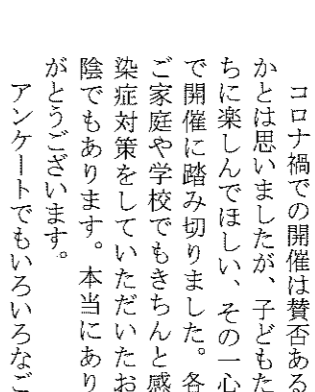 コロナ禍での開催は賛否ある
かとは思いましたが、子どもた
ちに楽しんでほしい、その一心
で開催に踏み切りました。各
ご家庭や学校でもきちんと感
染症対策をしていただいたお
陰でもあります。本当にあり
がとうございます。
アンケートでもいろいろなご